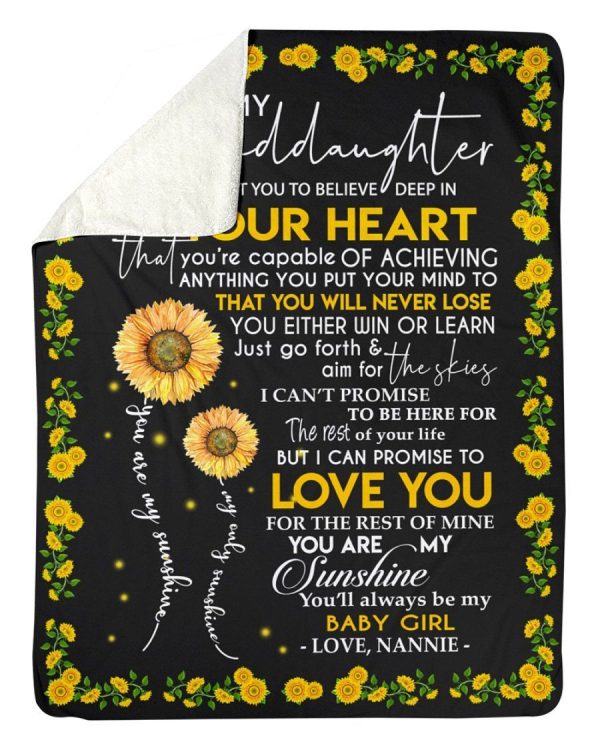 MY
ddaughter
T YOU TO BELIEVE DEEP IN
YOUR HEART
that you're capable OF ACHIEVING
ANYTHING YOU PUT YOUR MIND TO
THAT YOU WILL NEVER LOSE
YOU EITHER WIN OR LEARN
Just go forth &
aim for the skies
I CAN'T PROMISE
TO BE HERE FOR
The rest of your life
BUT I CAN PROMISE TO
LOVE YOU
FOR THE REST OF MINE
YOU ARE MY
Sunshine
You'll always be my
BABY GIRL
- LOVE, NANNIE -
you are my sunshine
my only sunshine